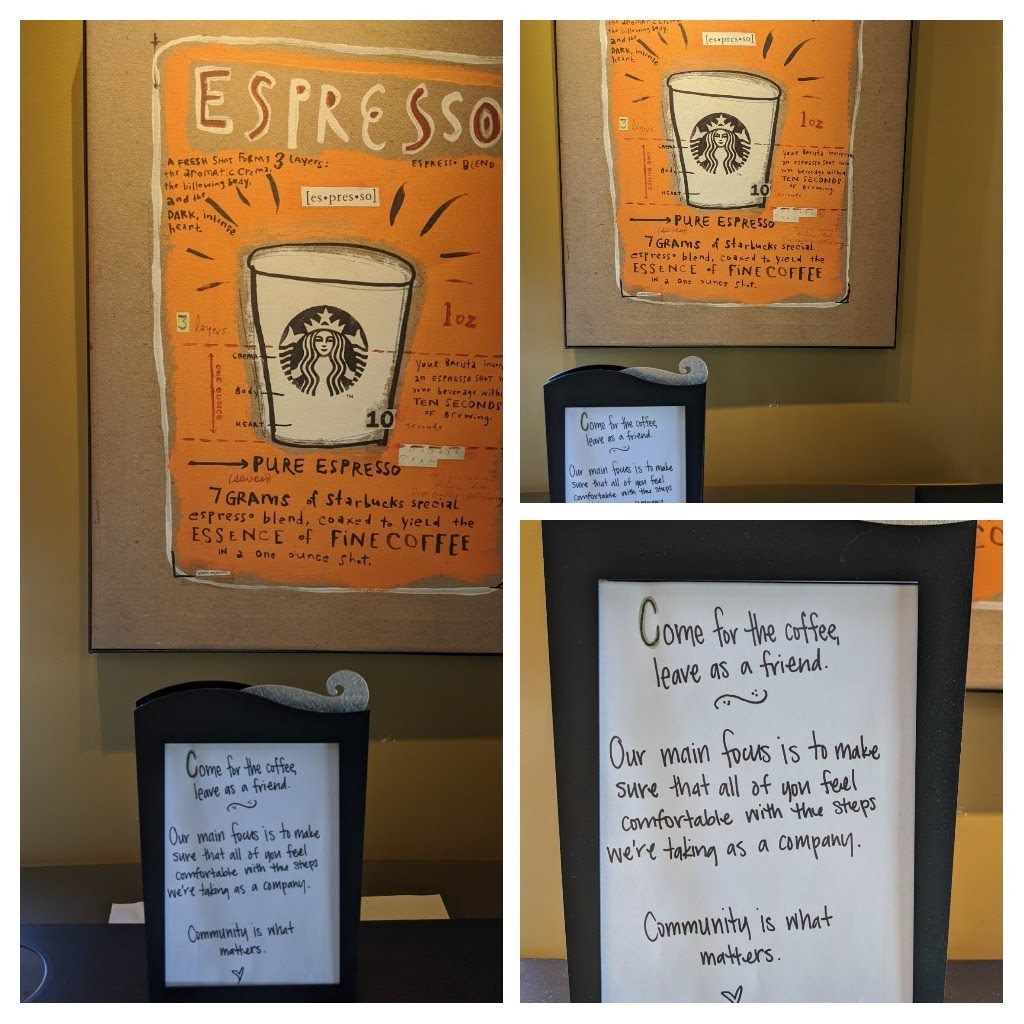 ESPRESSO
A FRESH SHOT FORMS 3 LAYERS:
the aromatic crema.
the billowing body.
and the
DARK, intense
heart.
ESPRESSO BLEND
[es•pres•so]
1oz
3 layers
CREMA
ONE OUNCE
Body
HEART
10
seconds
Your Barista
an ESPRESSO SHOT
your beverage within
TEN SECONDS
of Brewing.
PURE ESPRESSO
(seven)
7 GRAMS of Starbucks special
espresso blend, coaxed to yield the
ESSENCE of FINE COFFEE
IN a one ounce shot.
Come for the coffee,
leave as a friend.
Our main focus is to make
sure that all of you feel
comfortable with the steps
we're taking as a company.
Community is what
matters.
the billowing body.
and the
DARK, intense
heart.
[es•pres•so]
1oz
3 layers
CREMA
ONE OUNCE
Body
HEART
10
Your Barista
an espresso shot
your beverage within
TEN SECONDS
of Brewing.
PURE ESPRESSO
(seven)
7 GRAMS of Starbucks special
espresso blend, coaxed to yield the
ESSENCE of FINE COFFEE
IN a one ounce shot.
Come for the coffee,
leave as a friend.
Our main focus is to make
sure that all of you feel
comfortable with the steps
Come for the coffee,
leave as a friend.
Our main focus is to make
sure that all of you feel
comfortable with the steps
we're taking as a company.
Community is what
matters.